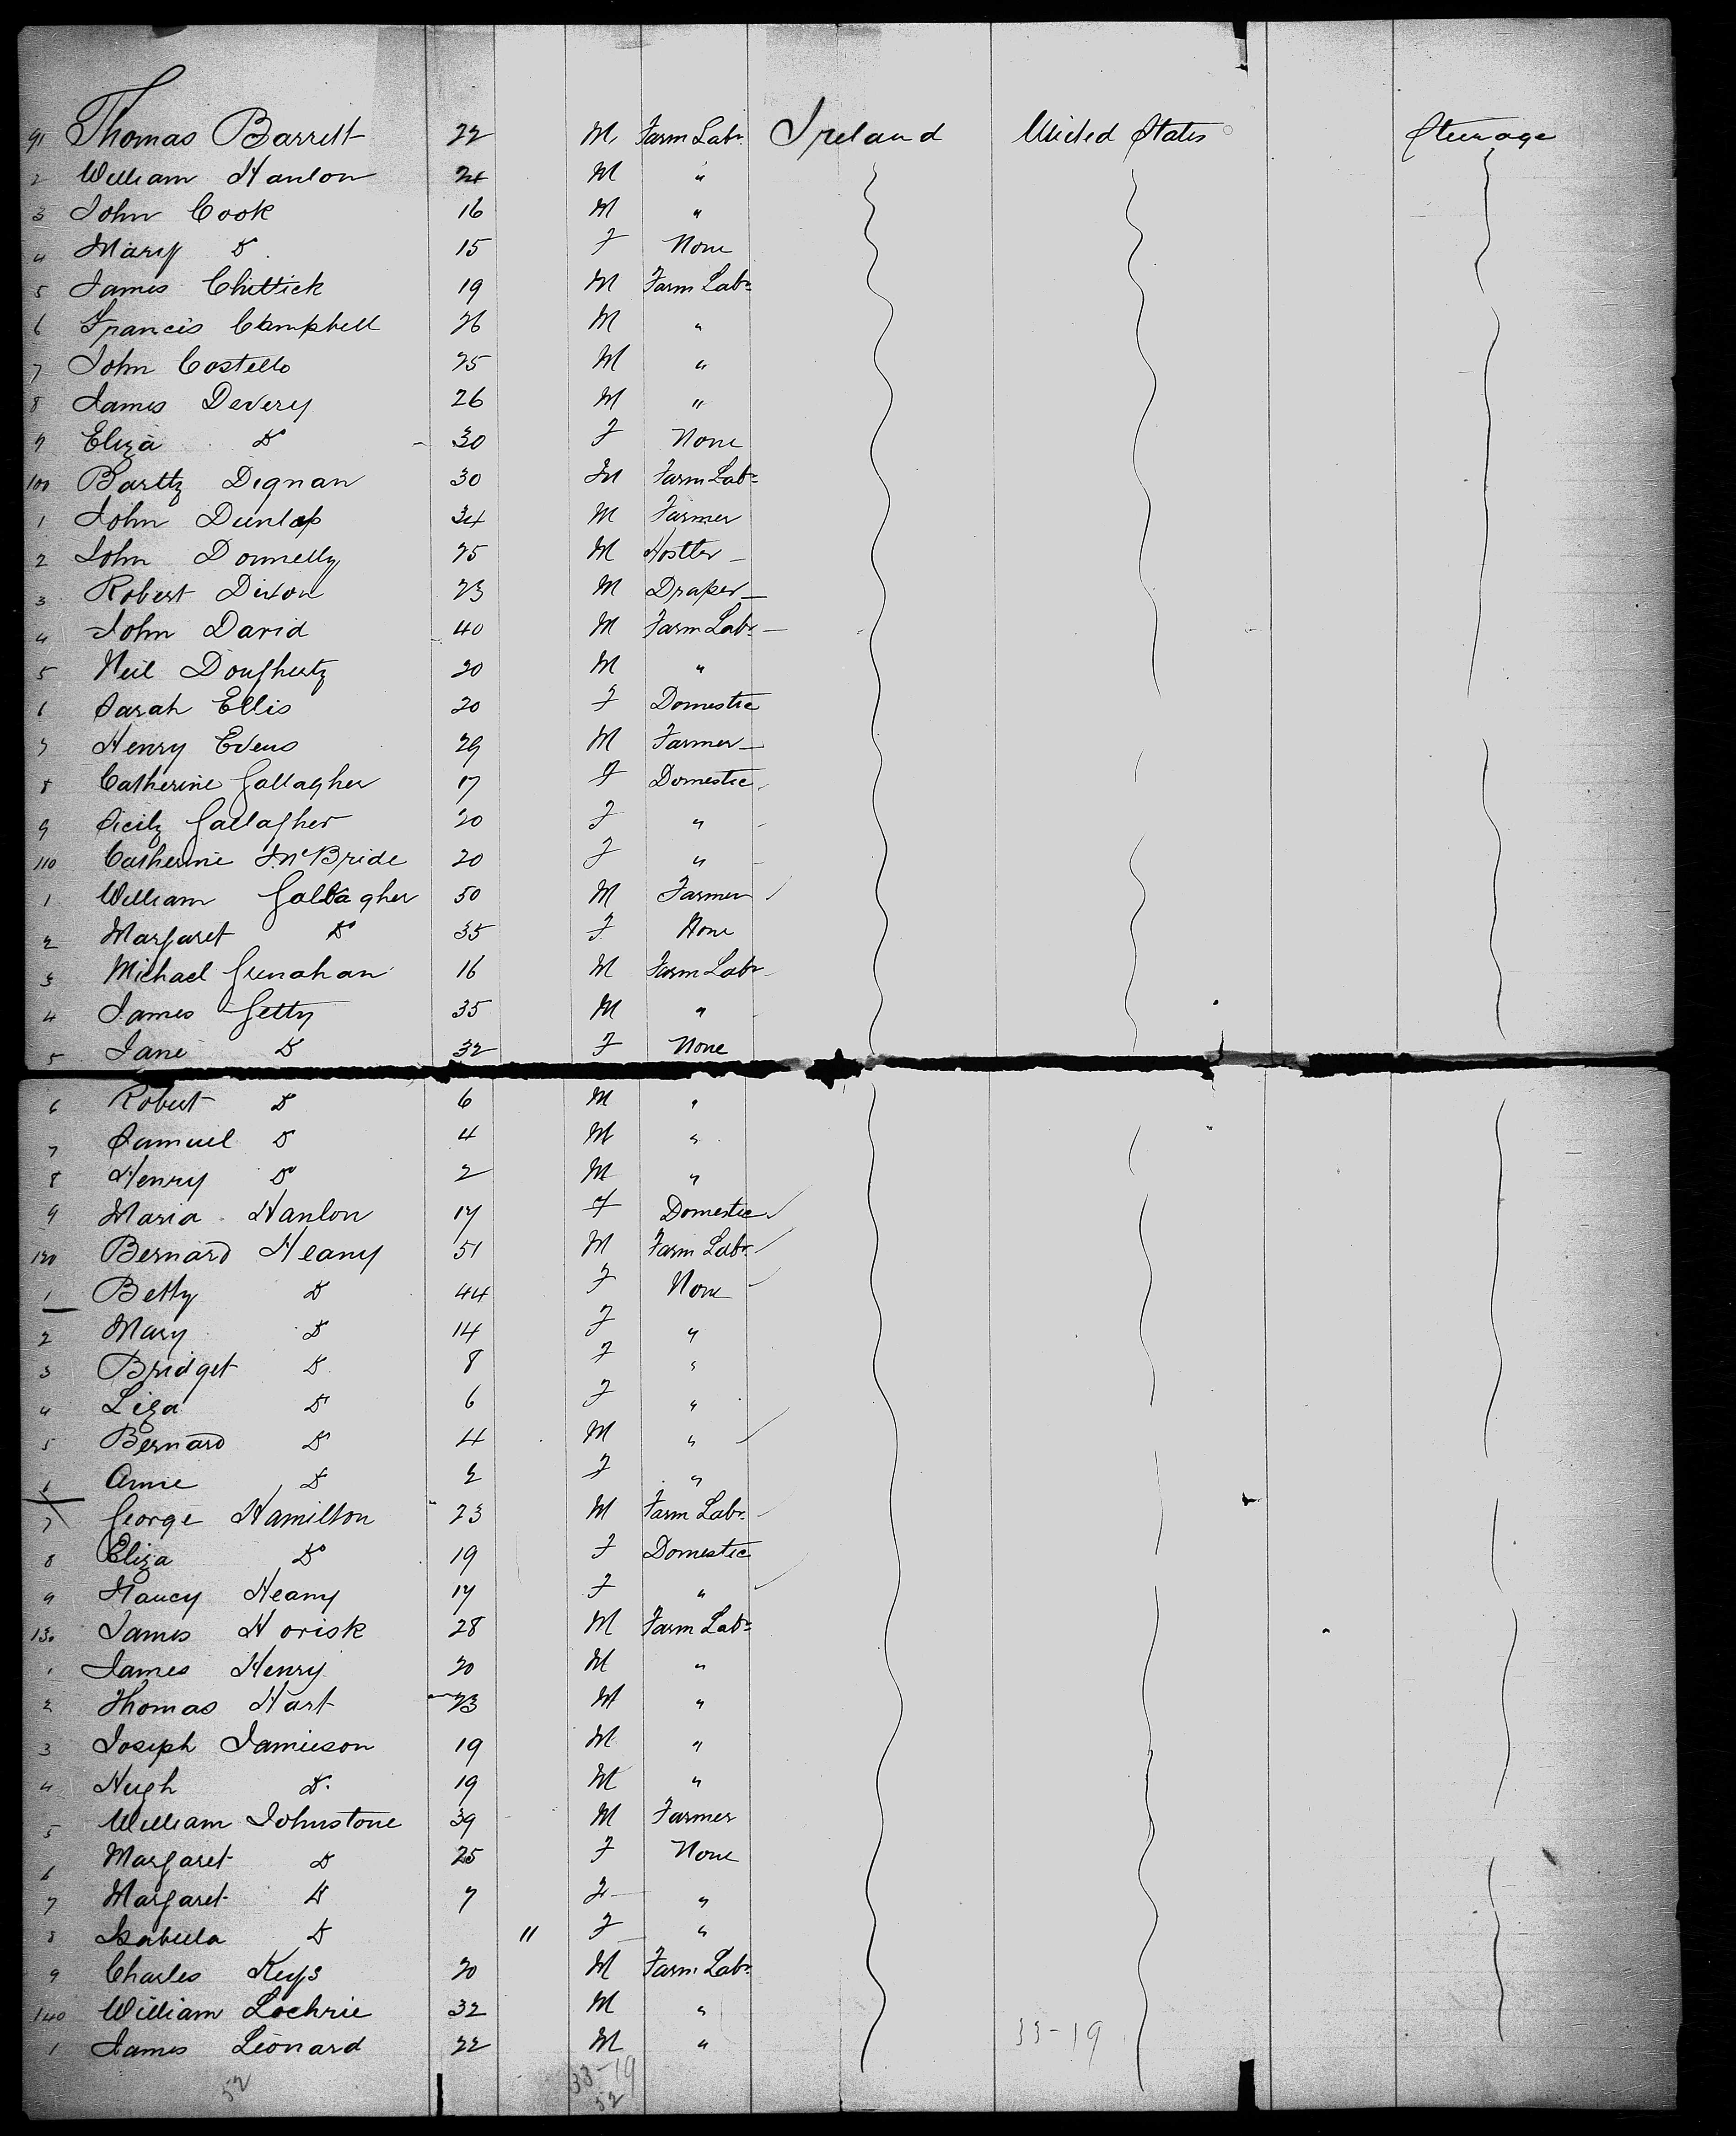 91 Thomas Barrett 22 M Farm Labr Ireland United States Steerage
2 William Hanlon 24 M "
3 John Cook 16 M "
4 Mary Do 15 F None
5 James Chittick 19 M Farm Labr
6 Francis Campbell 26 M "
7 John Costello 25 M "
8 James Devery 26 M "
9 Eliza Do 30 F None
100 Barttz Dignan 30 M Farm Labr
1 John Dunlop 34 M Farmer
2 John Donnelly 25 M Hostler
3 Robert Dixon 23 M Draper
4 John David 40 M Farm Labr
5 Neil Doughertz 20 M "
6 Sarah Ellis 20 F Domestic
7 Henry Evens 29 M Farmer
8 Catherine Gallagher 17 F Domestic
9 Sicily Gallagher 20 F "
110 Catherine McBride 20 F "
1 William Gallagher 50 M Farmer
2 Margaret Do 35 F None
3 Michael Grenahan 16 M Farm Labr
4 James Getty 35 M "
5 Jane Do 32 F None
6 Robert Do 6 M "
7 Samuel Do 4 M "
8 Henry Do 2 M "
9 Maria Hanlon 17 F Domestic
120 Bernard Heany 51 M Farm Labr
1 Betty Do 44 F None
2 Mary Do 14 F "
3 Bridget Do 8 F "
4 Liza Do 6 F "
5 Bernard Do 4 M "
6 Annie Do 2 F "
7 George Hamilton 23 M Farm Labr
8 Eliza Do 19 F Domestic
9 Nancy Heany 17 F "
130 James Horisk 28 M Farm Labr
1 James Henry 20 M "
2 Thomas Hart 23 M "
3 Joseph Jamieson 19 M "
4 Hugh Do 19 M "
5 William Johnstone 39 M Farmer
6 Margaret Do 25 F None
7 Margaret Do 7 F "
8 Isabella Do 11 F "
9 Charles Keys 20 M Farm Labr
140 William Lochrie 32 M "
1 James Leonard 22 M "
33-19
52 33-19
52